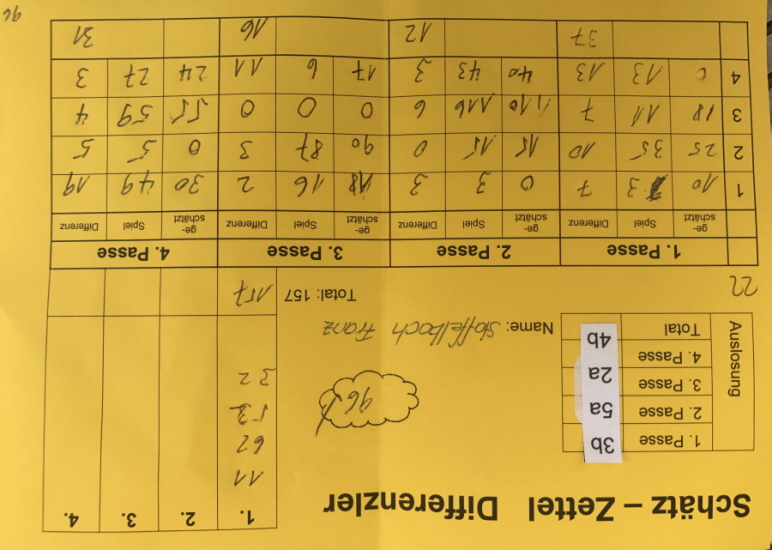 Schätz – Zettel Differenzler
1. 2. 3. 4.
Auslosung
1. Passe 3b
2. Passe 5a
3. Passe 2a
4. Passe 4b
Total
11
62
52
32
96
Name: Franz
Total: 157 157
22
1. Passe 2. Passe 3. Passe 4. Passe
ge-schätzt Spiel Differenz ge-schätzt Spiel Differenz ge-schätzt Spiel Differenz ge-schätzt Spiel Differenz
1 10 3 7 0 3 3 18 16 2 30 49 19
2 25 35 10 15 15 0 90 87 3 0 5 5
3 18 11 7 110 116 6 0 0 0 55 59 4
4 0 13 13 40 43 3 17 6 11 24 27 3
37 12 16 31
96